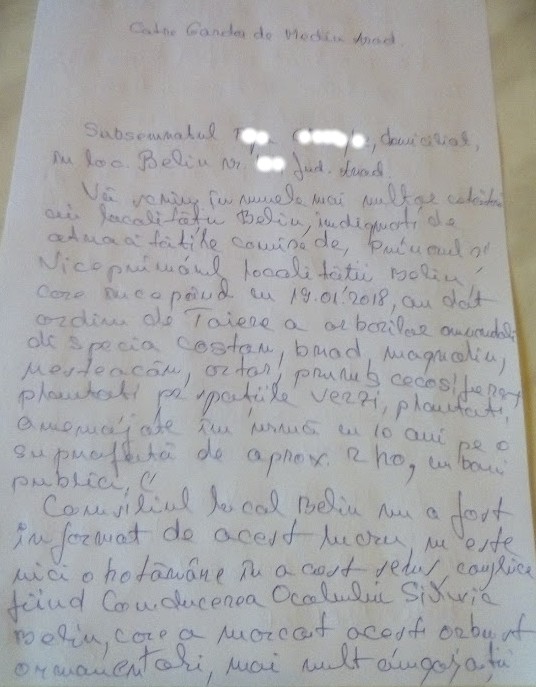 Catre Garda de Mediu Arad.
Subsemnatul T, domiciliat,
în loc. Beliu nr. Jud. Arad.
Vă scriu în numele mai multor cetățeni
ai localității Beliu, indignați de
comise de, Primarul și
Viceprimarul localității Beliu,
care începând cu 19.01.2018, au dat
ordin de Taiere a arborilor ornamentali
de specia castan, brad, magnolia,
mesteacăn, arțar, prunus
plantați pe spațiile verzi, plantați,
amenajate în urmă cu 10 ani pe o
suprafață de aprox. 2 ha, cu bani
publici,
Consiliul local Beliu nu a fost
informat de acest lucru nu este
nici o hotărâre în acest sens,
fiind Conducerea Ocolului Silvic
Beliu, care a marcat acest arbust
ornamentali, mai mult angajații